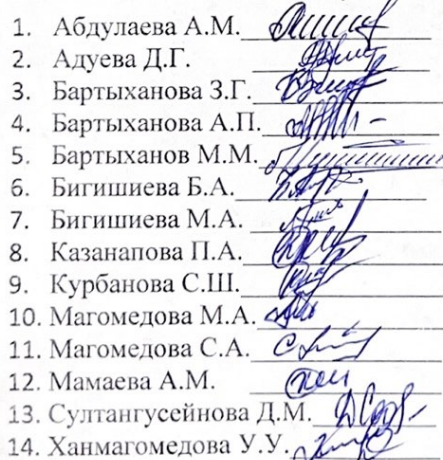 1. Абдулаева А.М.
2. Адуева Д.Г.
3. Бартыханова З.Г.
4. Бартыханова А.П.
5. Бартыханов М.М.
6. Бигишиева Б.А.
7. Бигишиева М.А.
8. Казанапова П.А.
9. Курбанова С.Ш.
10. Магомедова М.А.
11. Магомедова С.А.
12. Мамаева А.М.
13. Султангусейнова Д.М.
14. Ханмагомедова У.У.